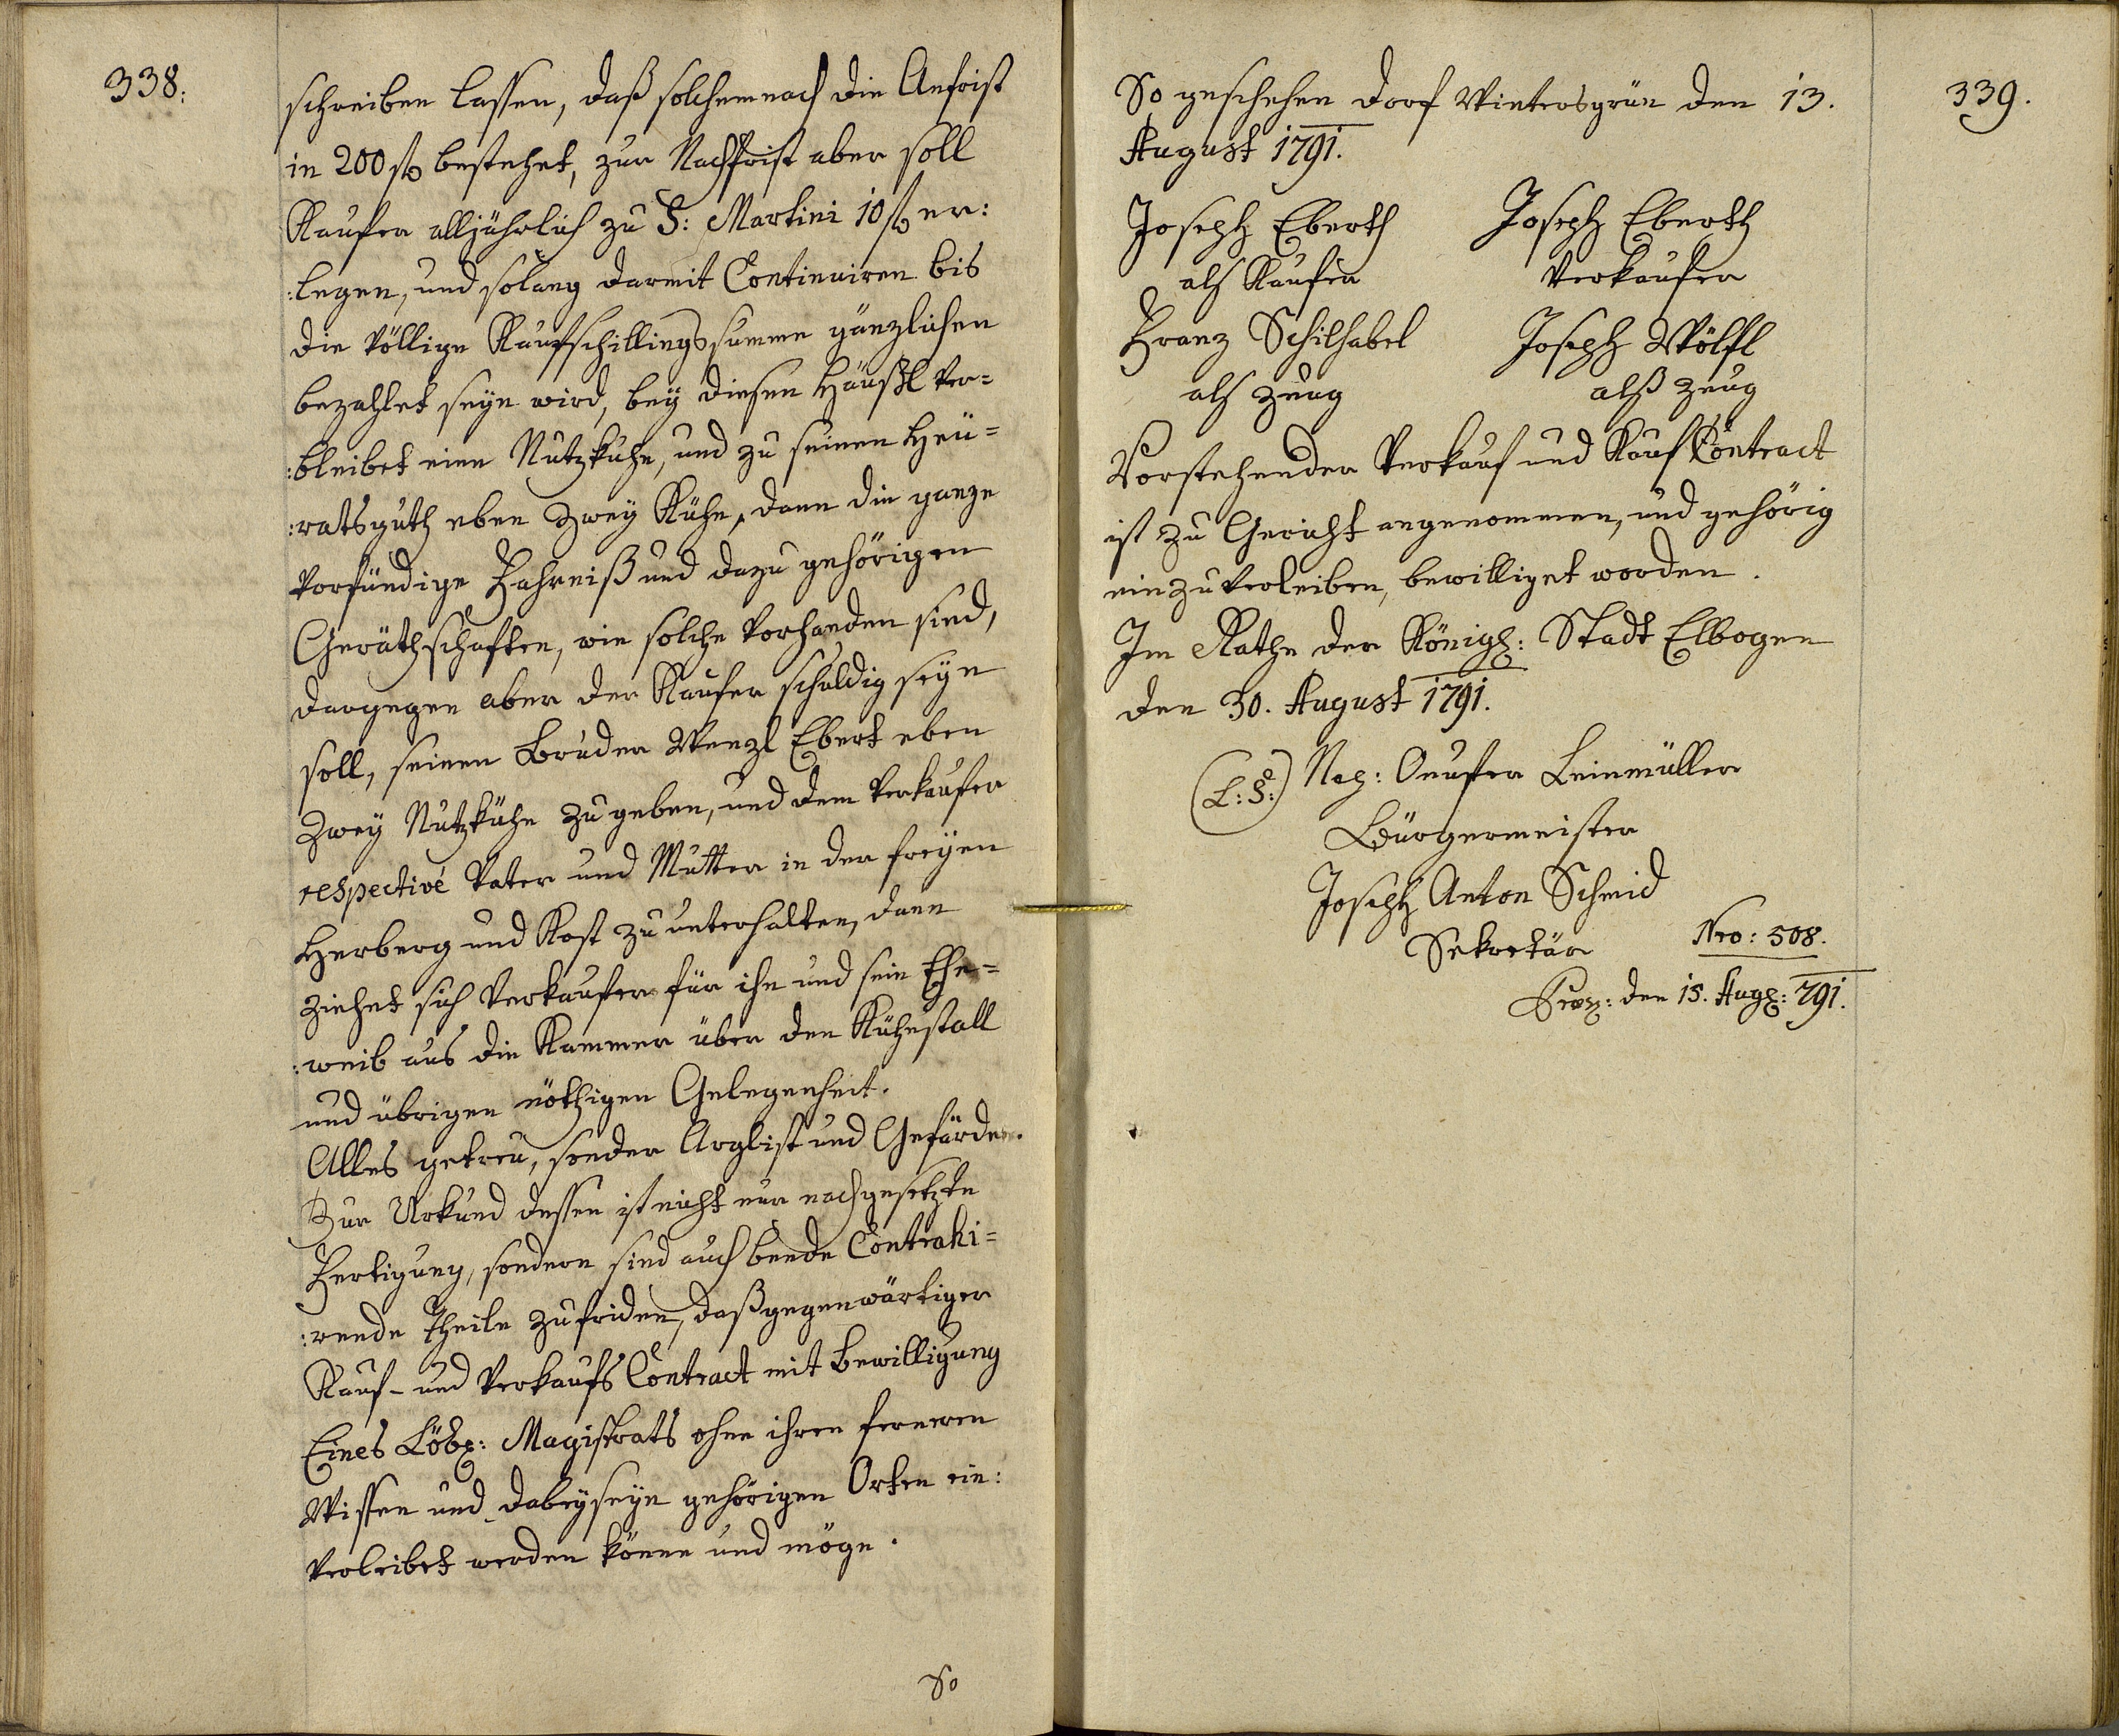 338.
schreiben lassen, daß solchemnach die Anfrist
in 200 ß bestehet, zur Nachfrist aber soll
Kaufer alljährlich zu S: Martini 10 ß er:
:legen, und solang darmit Continuiren bis
die völlige Kaufschillingssumme gänzlichen
bezahlet seyn wird, bey diesen Häußl ver=
:bleibet eine Nutzkuhe, und zu seinen Heü=
:ratsguth eben Zwey Kühe, dann die ganze
vorfündige Fahrniß und dazu gehörigen
Geräthschaften, wie solche vorhanden sind,
dargegen aber der Kaufer schuldig seyn
soll, seinen Bruder Wenzl Ebert eben
Zwey Nutzkühe zu geben, und dem Verkaufer
respectivé Vater und Mutter in der freyen
Herberg und Kost zu unterhalten, dann
ziehet sich Verkaufer für ihn und sein Ehe=
:weib aus die Kammer über den Kühestall
und übrigen nöthigen Gelegenheit.
Alles getreu, sonder Arglist und Gefärde.
Zur Urkund dessen ist nicht nur nachgesetzte
Fertigung, sondern sind auch beede Contrahi=
:rende Theile zufriden, daß gegenwärtiger
Kauf- und Verkaufs Contract mit Bewilligung
Eines Löbl: Magistrats ohne ihren ferneren
Wissen und dabeyseyn gehörigen Orten ein:
verleibet werden könne und möge.
So
339.
So geschehen Dorf Wintersgrün den 13.
August 1791.
Joseph Eberth Joseph Eberth
als Kaufer Verkaufer
Franz Schilhabel Joseph Wölfl
als Zeug alß Zeug
Vorstehender Verkauf und Kauf Contract
ist zu Gericht angenommen, und gehörig
einzuverleiben, bewilliget worden.
Im Rathe der Königl: Stadt Elbogen
den 30. August 1791.
(L:S:) Onufer Leinmüller
Bürgermeister
Joseph Anton Schmid
Sekretär Nro: 508.
den 15. Augl: 791.